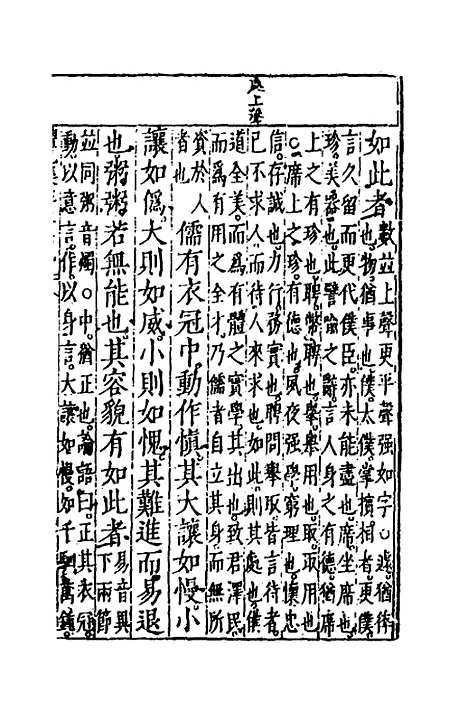 處上聲
如此者數並上聲更平聲强如字○遽猶倅
也物猶事也僕太僕掌擯相者更僕
言久留而更代僕臣亦未能盡也席坐席也
珍美器也此譬喻之辭言人身之有德猶席
上之有珍也聘幣聘也舉舉用也取取用也
○席上之珍有德也夙夜强學窮理也懷忠
信存誠也力行務實也聘問舉取皆言待者
已不求人而待人來求也如此則其處也儒
道全美而爲有體之實學其出也致君澤民
而爲有用之全才乃儒者自立其身而無所
資於人
者也
儒有衣冠中動作慎其大讓如慢小
讓如僞大則如威小則如愧其難進而易退
也粥粥若無能也其容貌有如此者易音異
下兩節
並同粥音燭○中猶正也論語曰正其衣冠
動以意言作以身言大讓如慢如千